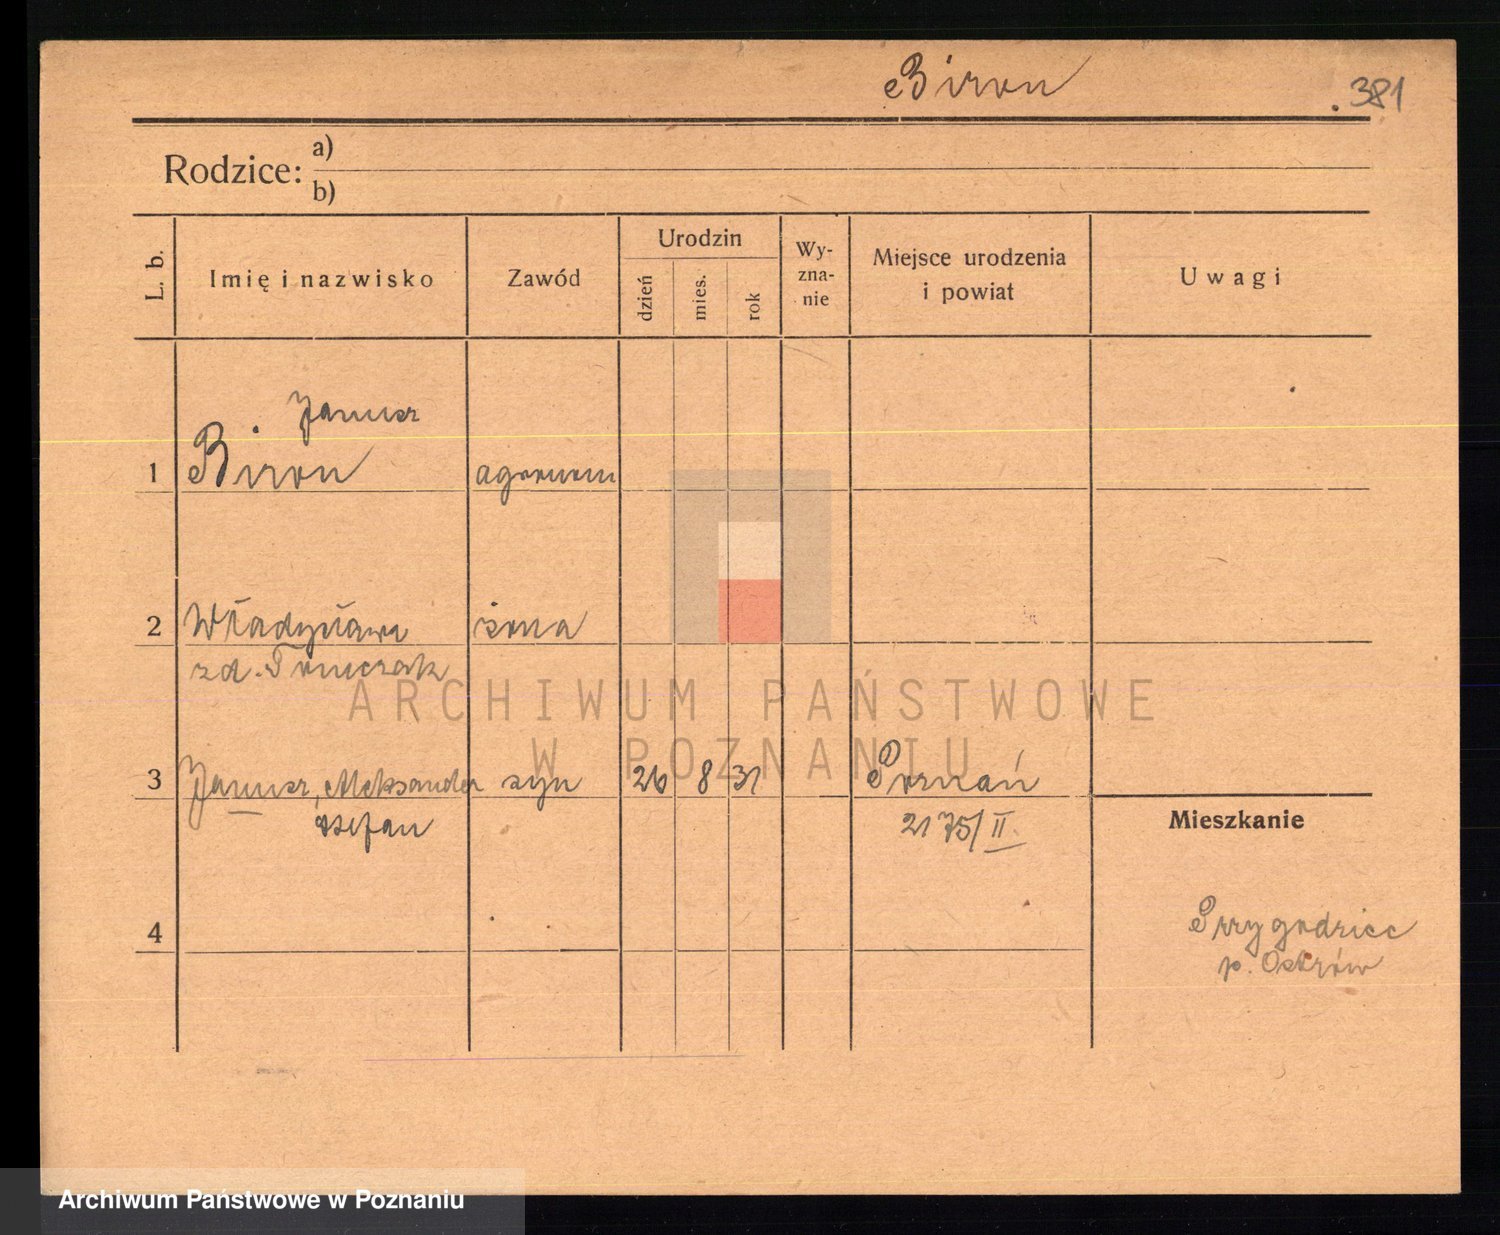 Biron
.381
Rodzice: a)
b)
L. b.
Imię i nazwisko
Zawód
Urodzin
dzień
mies.
rok
Wy-
zna-
nie
Miejsce urodzenia
i powiat
Uwagi
Janusz
1 Biron agronom
2 Władysława żona
zd.
3 Janusz, Aleksander syn 26 8 31 Poznań
Stefan 2175/II.
Mieszkanie
4
Przygodzice
p. Ostrów
ARCHIWUM PAŃSTWOWE
W POZNANIU
Archiwum Państwowe w Poznaniu